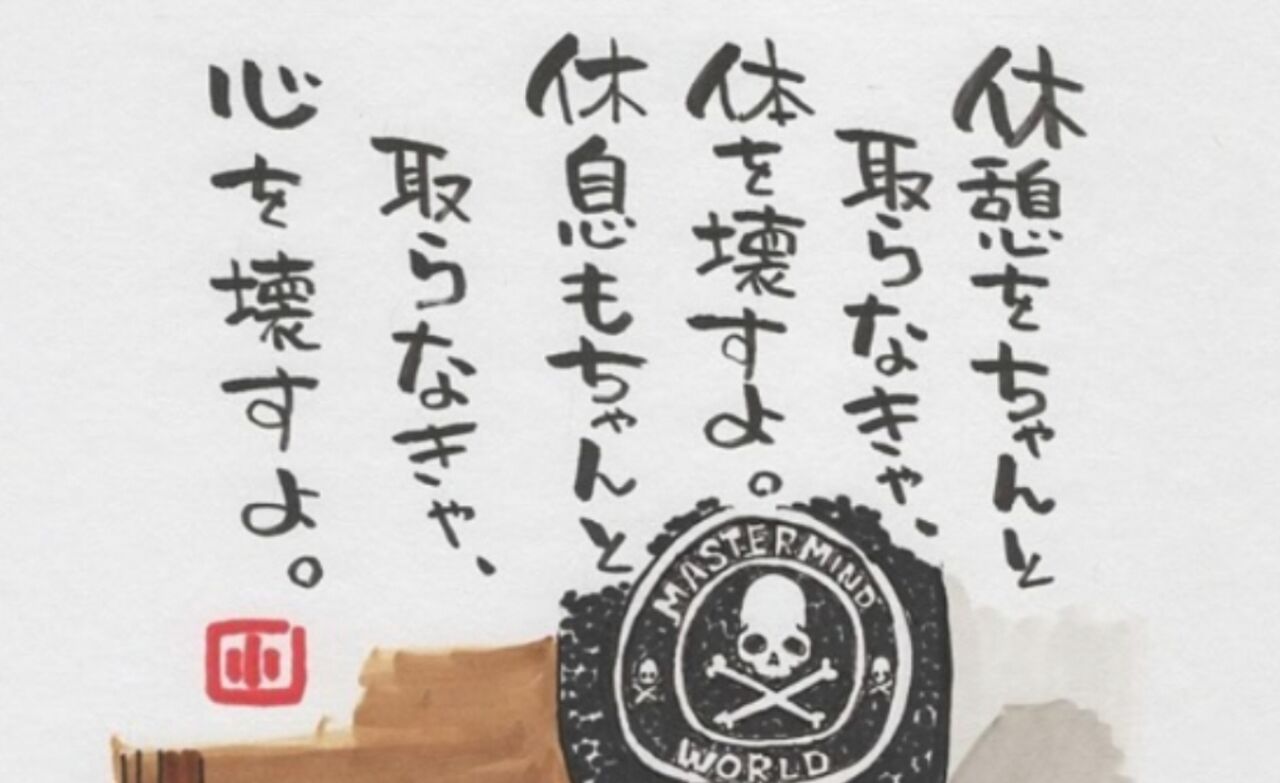 休憩をちゃんと
取らなきゃ、
体を壊すよ。
休息もちゃんと
取らなきゃ、
心を壊すよ。
MASTERMIND
WORLD